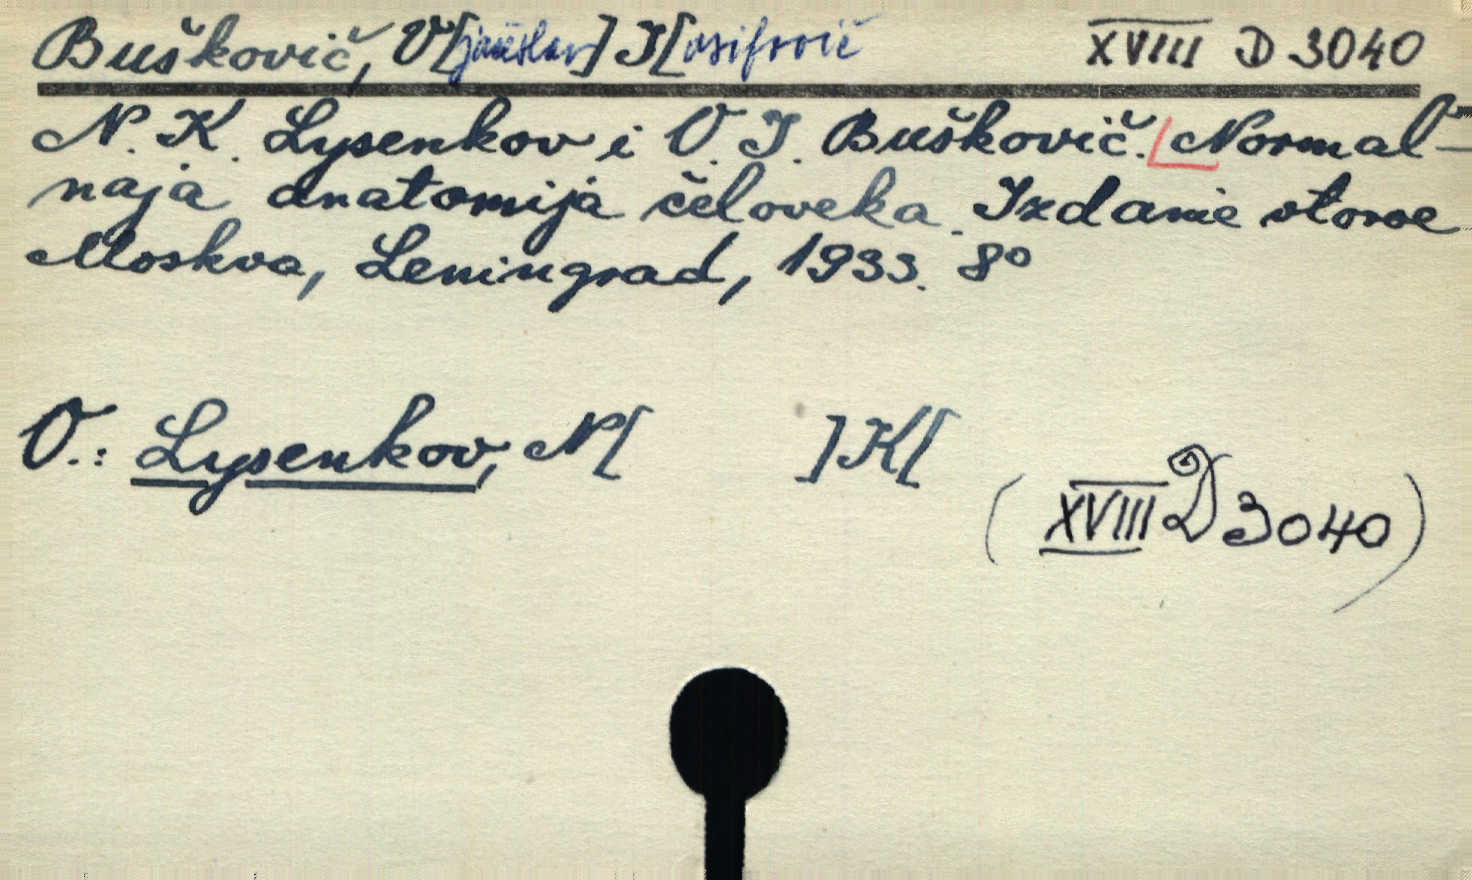 Buškovič, V[jačeslav] I[osifovič XVIII D 3040
N. K. Lysenkov i V. I. Buškovič. Normal'-
naja anatomija čeloveka. Izdanie vtoroe
Moskva, Leningrad, 1933. 8º
V.: Lysenkov, N[ ] K[
(XVIII D 3040)